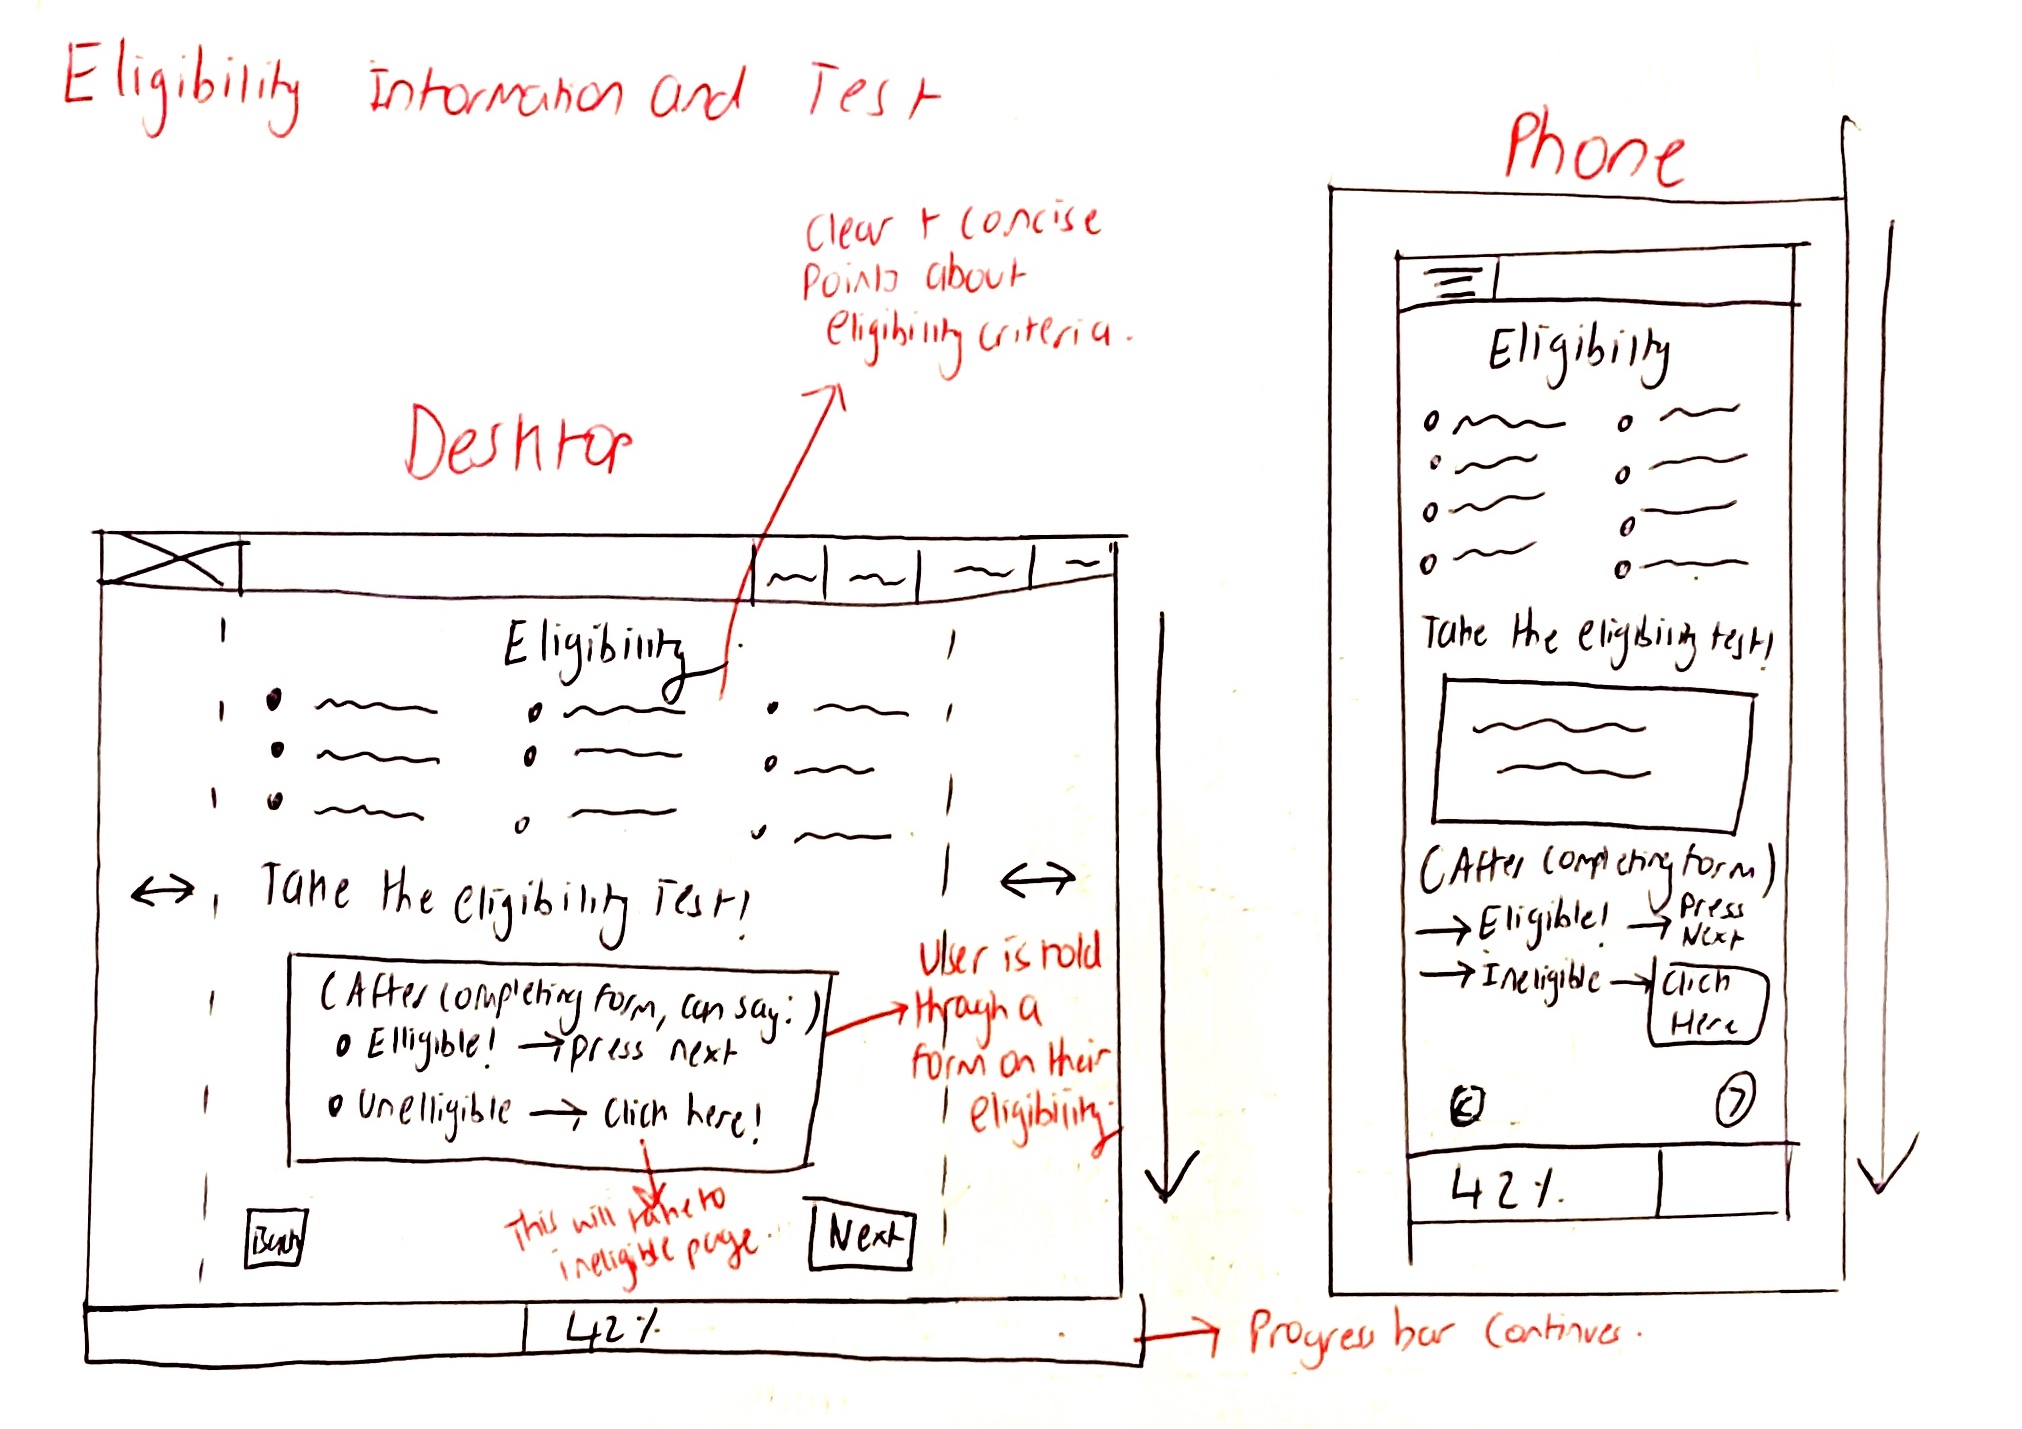 Eligibility Information and Test
Phone
Clear + concise
points about
eligibility criteria.
Desktop
Eligibility
Take the eligibility Test!
(After completing form, can say:)
Elligible! → press next
Unelligible → Click here!
User is told
through a
form on their
eligibility.
This will take to
ineligible page.
Back
Next
42%
Progress bar continues.
Eligibilty
Take the eligibility test!
(After completing form)
→ Eligible! → Press
Next
→ Ineligible → Click
Here
<
>
42%